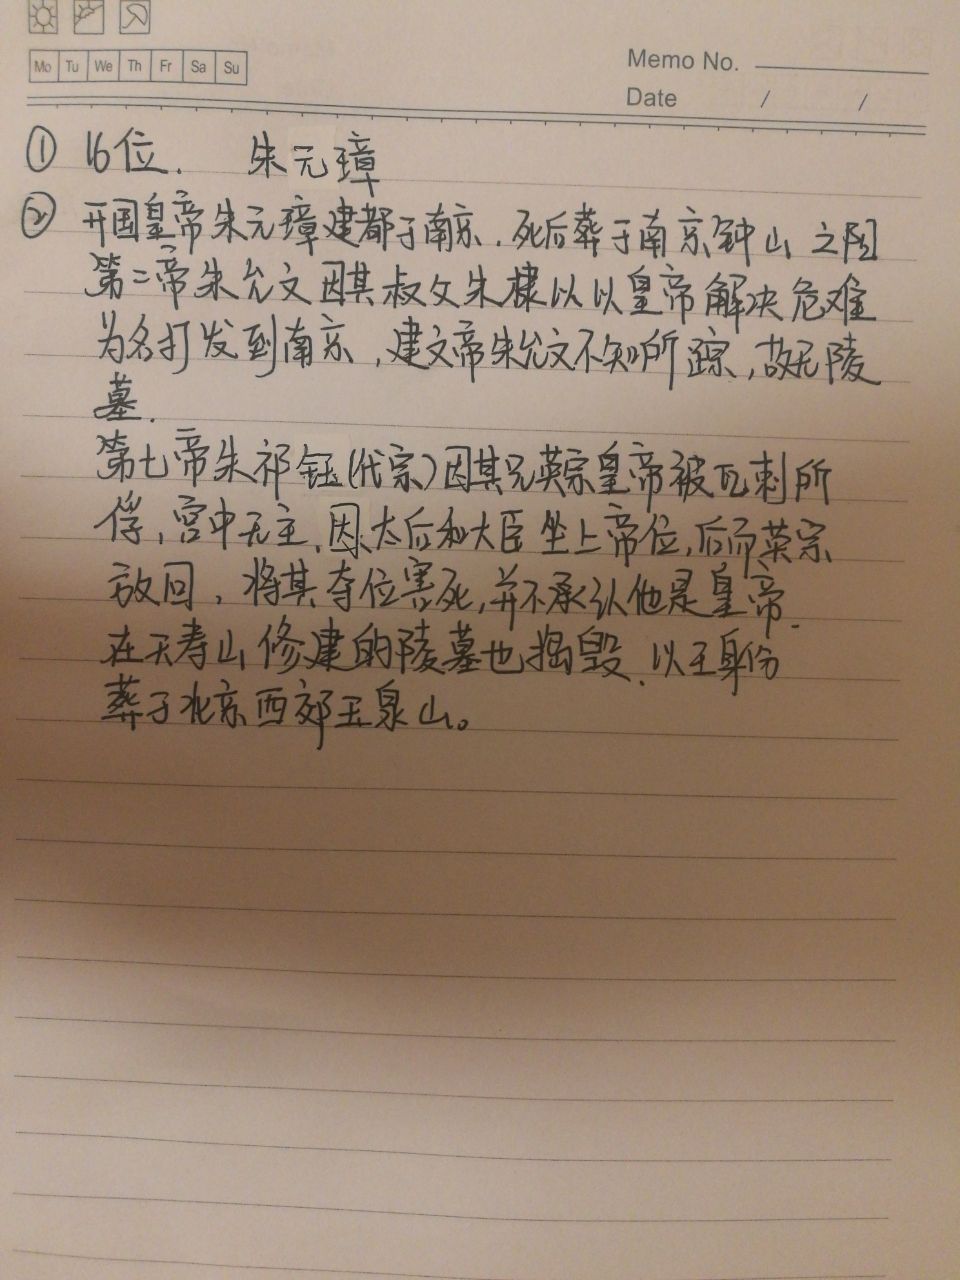 Mo Tu We Th Fr Sa Su
Memo No.
Date / /
① 16位. 朱元璋
② 开国皇帝朱元璋建都于南京.死后葬于南京钟山之阳
第二帝朱允文因其叔父朱棣以以皇帝解决危难
为名打发到南京,建文帝朱允文不知所踪,故无陵
墓.
第七帝朱祁钰(代宗)因其兄英宗皇帝被瓦剌所
俘,宫中无主.因太后和大臣坐上帝位,后而英宗
放回,将其夺位害死,并不承认他是皇帝.
在天寿山修建的陵墓也捣毁.以王身份
葬于北京西郊玉泉山。